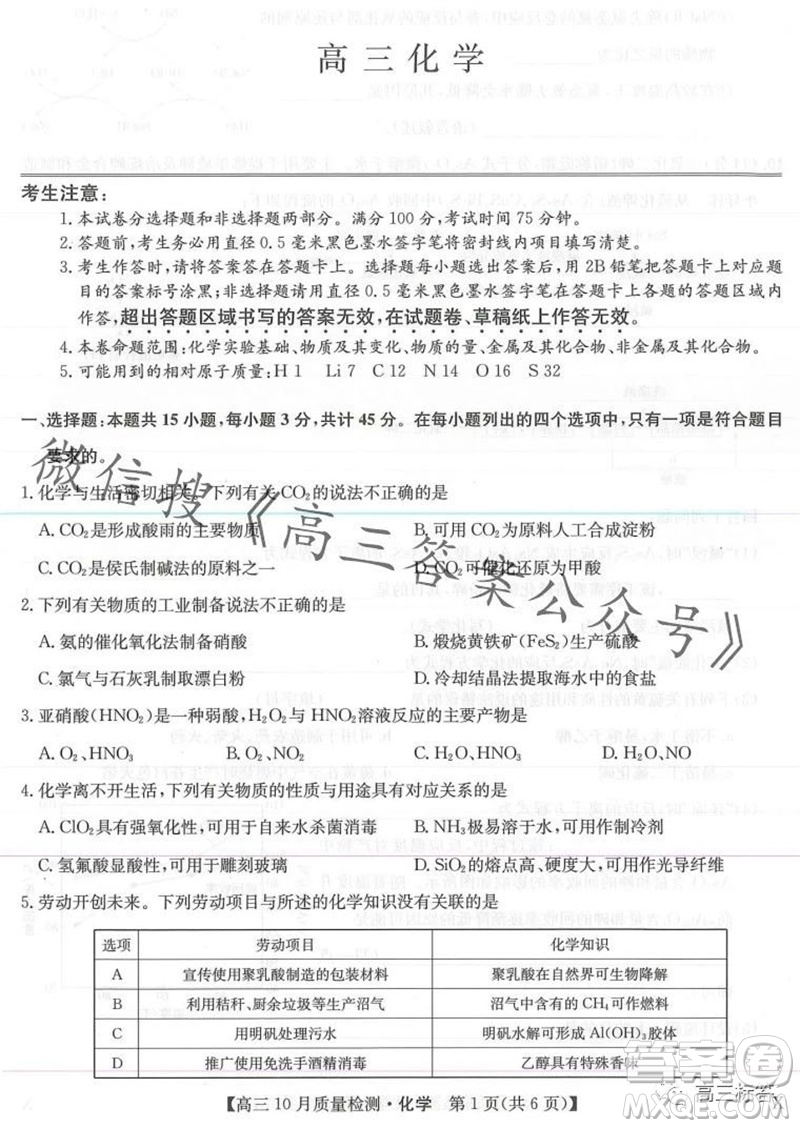 高三化学
考生注意:
1.本试卷分选择题和非选择题两部分。满分100分,考试时间75分钟。
2.答题前,考生务必用直径0.5毫米黑色墨水签字笔将密封线内项目填写清楚。
3.考生作答时,请将答案答在答题卡上。选择题每小题选出答案后,用2B铅笔把答题卡上对应题目
的答案标号涂黑;非选择题请用直径0.5毫米黑色墨水签字笔在答题卡上各题的答题区域内
作答,超出答题区域书写的答案无效,在试题卷、草稿纸上作答无效。
4.本卷命题范围:化学实验基础、物质及其变化、物质的量、金属及其化合物、非金属及其化合物。
5.可能用到的相对原子质量:H 1 Li 7 C 12 N 14 O 16 S 32
一、选择题:本题共15小题,每小题3分,共计45分。在每小题列出的四个选项中,只有一项是符合题目
要求的。
1.化学与生活密切相关。下列有关CO₂的说法不正确的是
A.CO₂是形成酸雨的主要物质 B.可用CO₂为原料人工合成淀粉
C.CO₂是侯氏制碱法的原料之一 D.CO₂可催化还原为甲酸
2.下列有关物质的工业制备说法不正确的是
A.氨的催化氧化法制备硝酸 B.煅烧黄铁矿(FeS₂)生产硫酸
C.氯气与石灰乳制取漂白粉 D.冷却结晶法提取海水中的食盐
3.亚硝酸(HNO₂)是一种弱酸,H₂O₂与HNO₂溶液反应的主要产物是
A.O₂、HNO₃ B.O₂、NO₂ C.H₂O、HNO₃ D.H₂O、NO
4.化学离不开生活,下列有关物质的性质与用途具有对应关系的是
A.ClO₂具有强氧化性,可用于自来水杀菌消毒 B.NH₃极易溶于水,可用作制冷剂
C.氢氟酸显酸性,可用于雕刻玻璃 D.SiO₂的熔点高、硬度大,可用作光导纤维
5.劳动开创未来。下列劳动项目与所述的化学知识没有关联的是
选项 劳动项目 化学知识
A 宣传使用聚乳酸制造的包装材料 聚乳酸在自然界可生物降解
B 利用秸秆、厨余垃圾等生产沼气 沼气中含有的CH₄可作燃料
C 用明矾处理污水 明矾水解可形成Al(OH)₃胶体
D 推广使用免洗手酒精消毒 乙醇具有特殊香味
【高三10月质量检测·化学 第1页(共6页)】
X
微信搜《高三答案公众号》
答案圈
高三标答
MXQE.COM